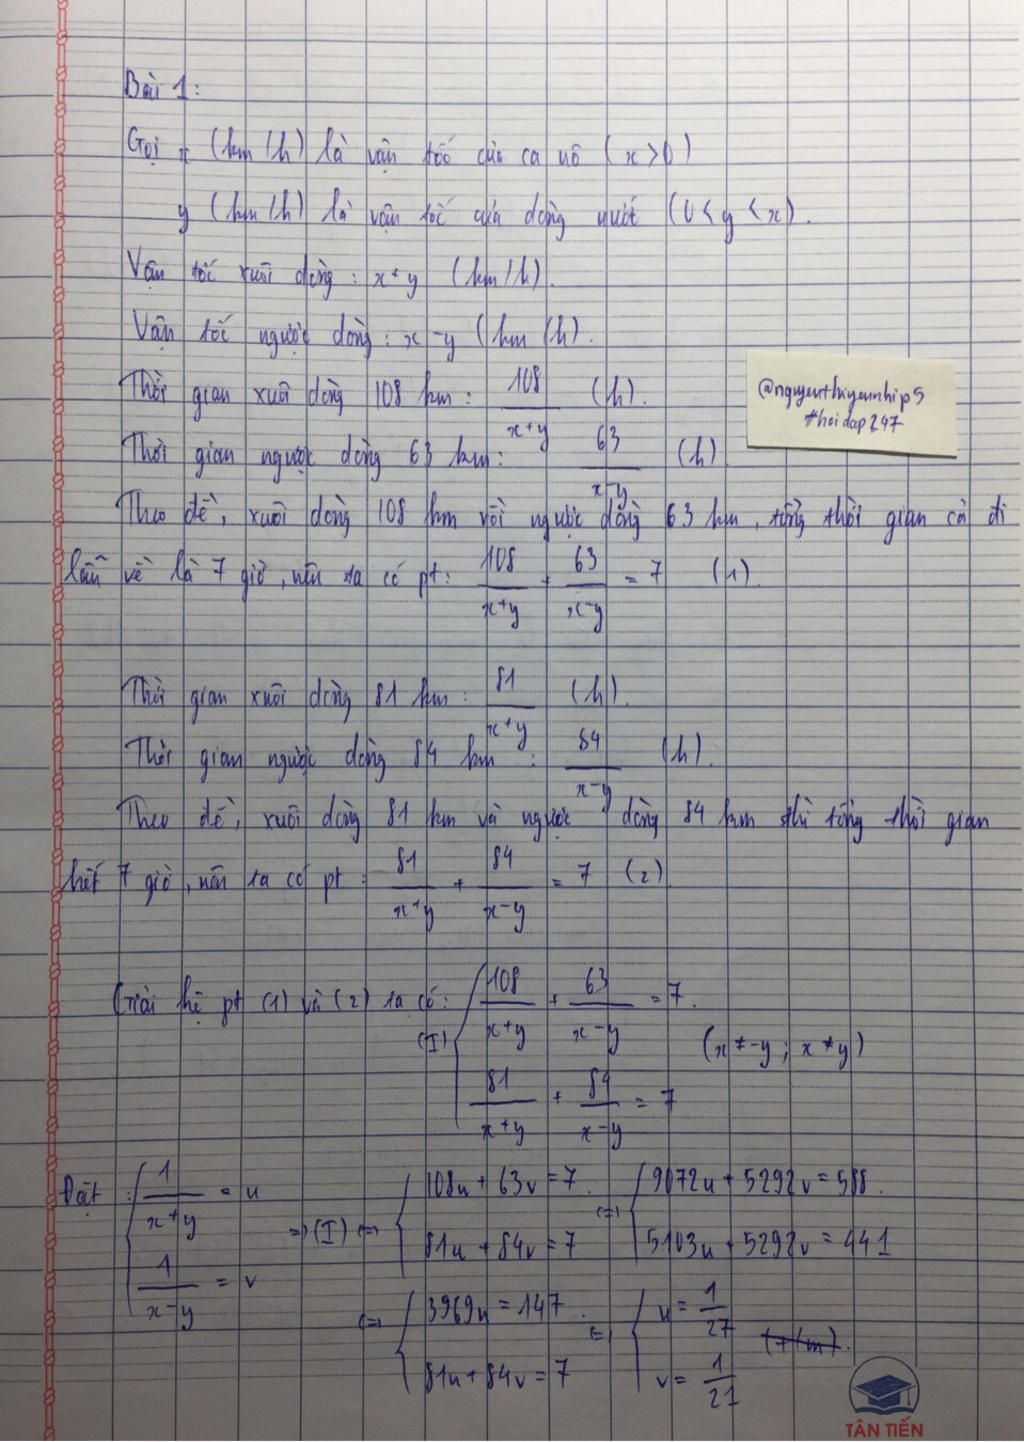 Bài 1:
Gọi x (km/h) là vận tốc của ca nô (x>0)
y (km/h) là vận tốc của dòng nước (0<y<x).
Vận tốc xuôi dòng: x+y (km/h).
Vận tốc ngược dòng: x-y (km/h).
Thời gian xuôi dòng 108 km: 108/(x+y) (h).
@nguyenthiyennhip5
#hoidap247
Thời gian ngược dòng 63 km: 63/(x-y) (h)
Theo đề, xuôi dòng 108 km với ngược dòng 63 km, tổng thời gian cả đi
lẫn về là 7 giờ, nên ta có pt: 108/(x+y) + 63/(x-y) = 7 (1).
Thời gian xuôi dòng 81 km: 81/(x+y) (h).
Thời gian ngược dòng 84 km: 84/(x-y) (h).
Theo đề, xuôi dòng 81 km và ngược dòng 84 km thì tổng thời gian
hết 7 giờ, nên ta có pt: 81/(x+y) + 84/(x-y) = 7 (2)
Giải hệ pt (1) và (2) ta có: 108/(x+y) + 63/(x-y) = 7.
(I) (x ≠ -y; x ≠ y)
81/(x+y) + 84/(x-y) = 7
Đặt: 1/(x+y) = u
1/(x-y) = v
=> (I) <=> 108u + 63v = 7 <=> 9072u + 5292v = 588.
81u + 84v = 7 5103u + 5292v = 441
<=> 3969u = 147 <=> u = 1/27
81u + 84v = 7 v = 1/21
TÂN TIẾN